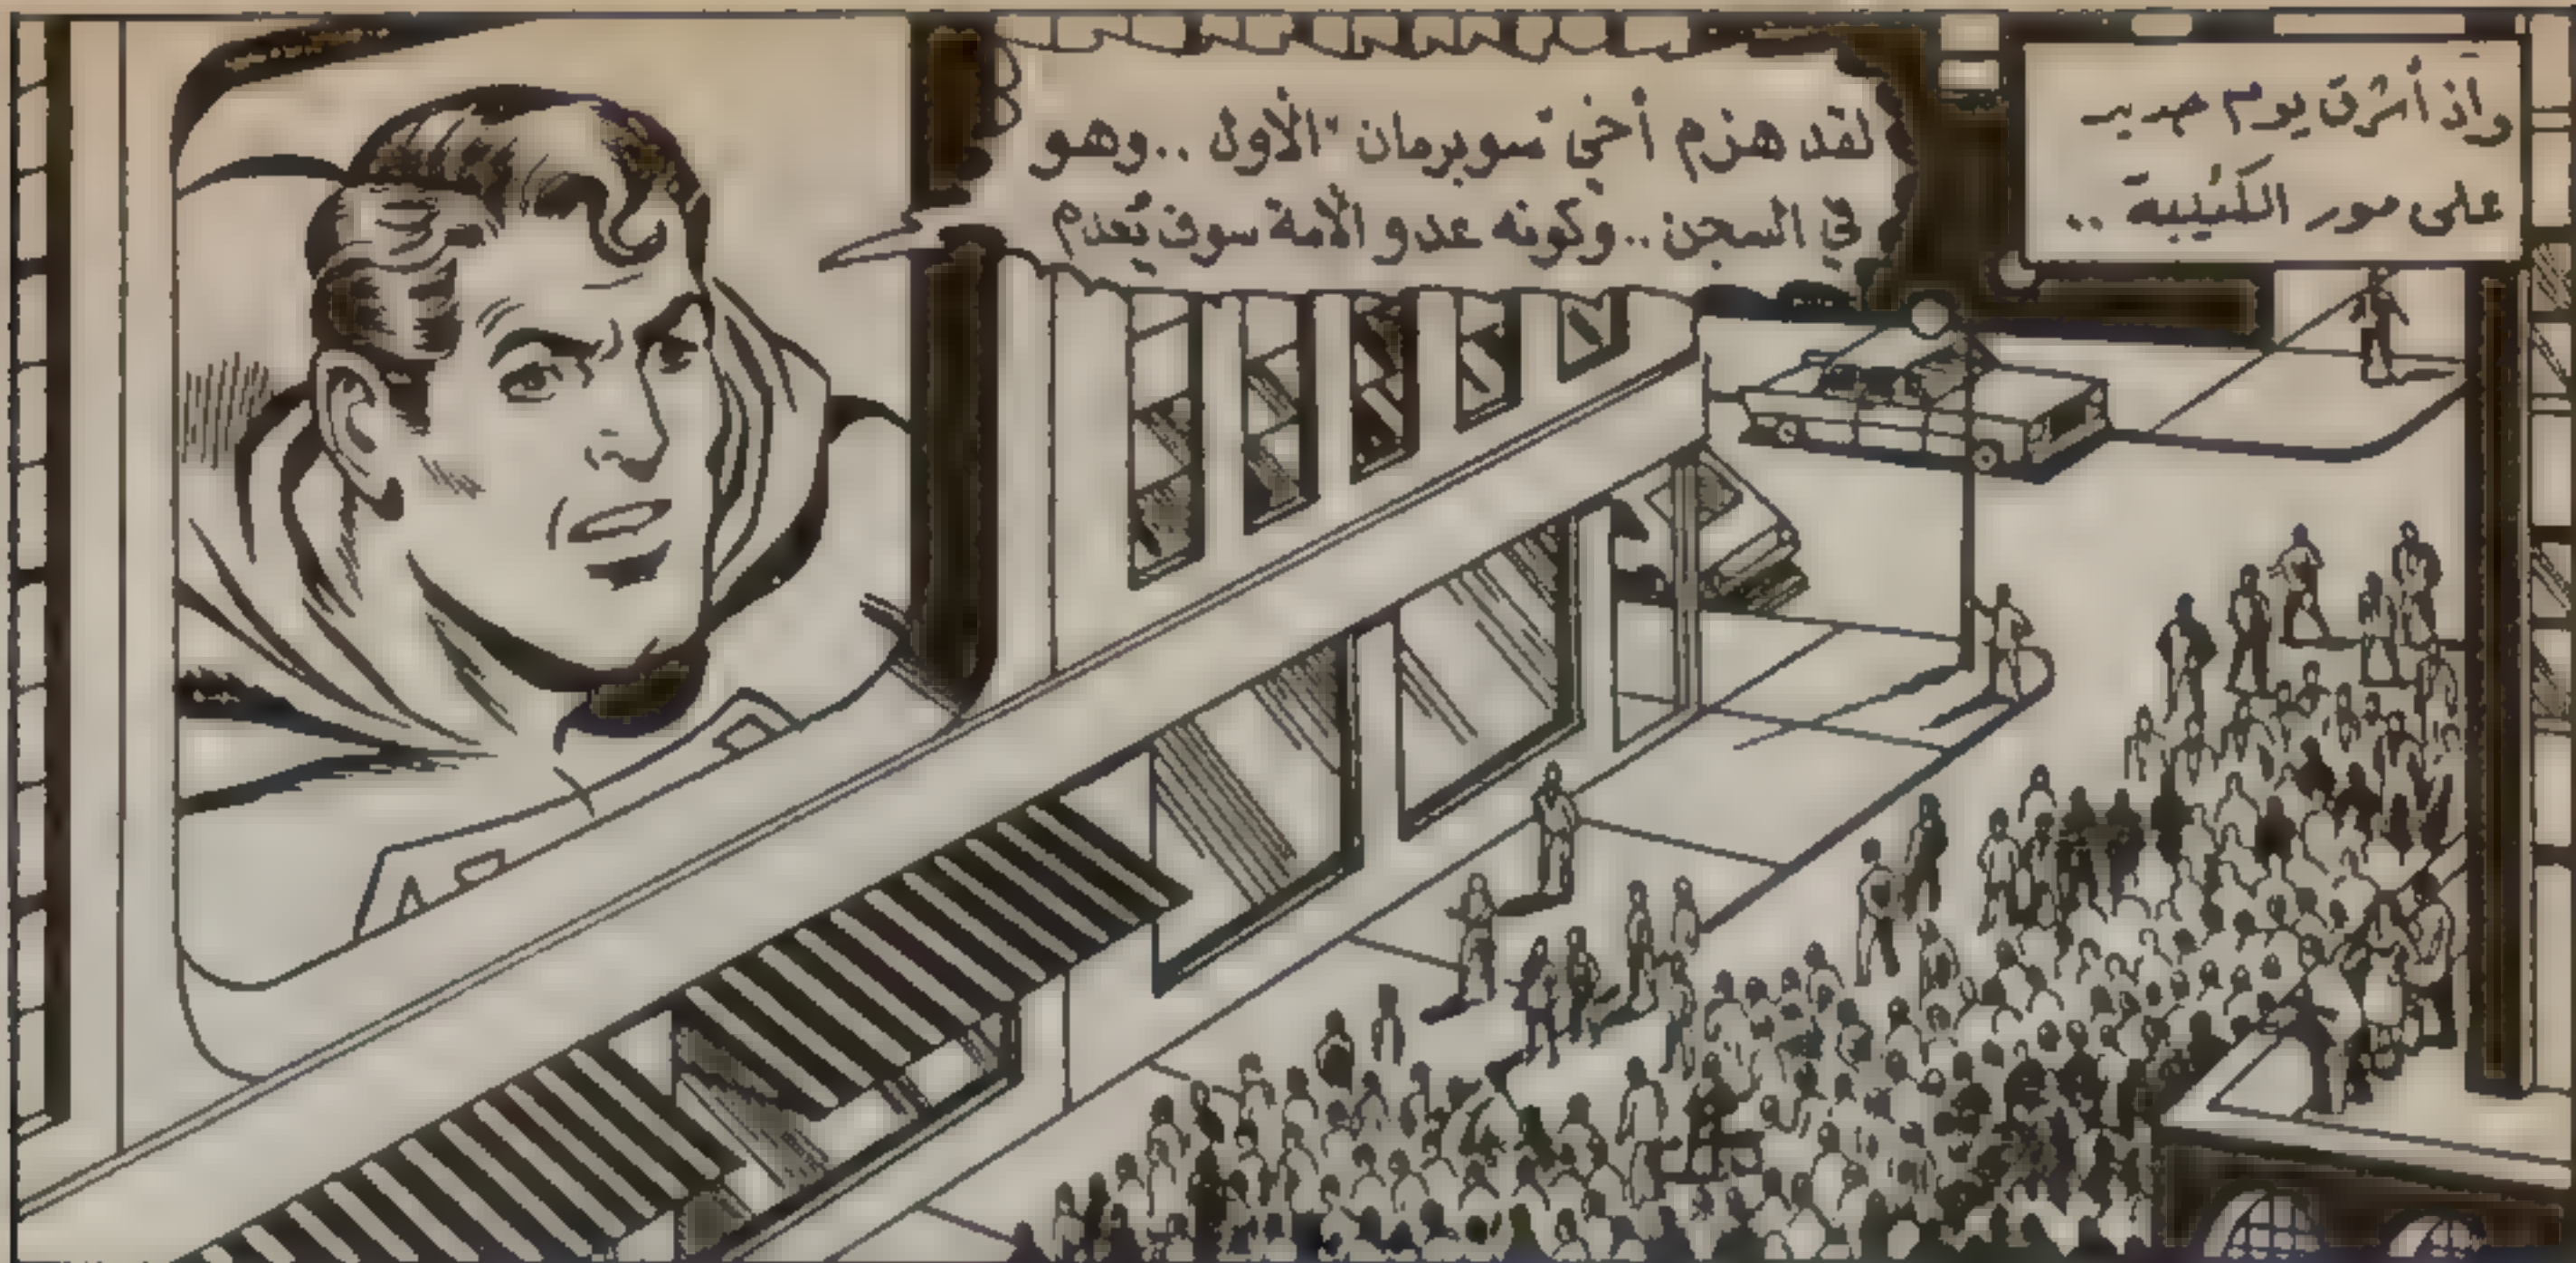 وإذ أشرق يوم جديد
على مور الكئيبة ..
لقد هزم أخي سوبرمان "الأول ..وهو
في السجن ..وكونه عدو الأمة سوف يُعدم